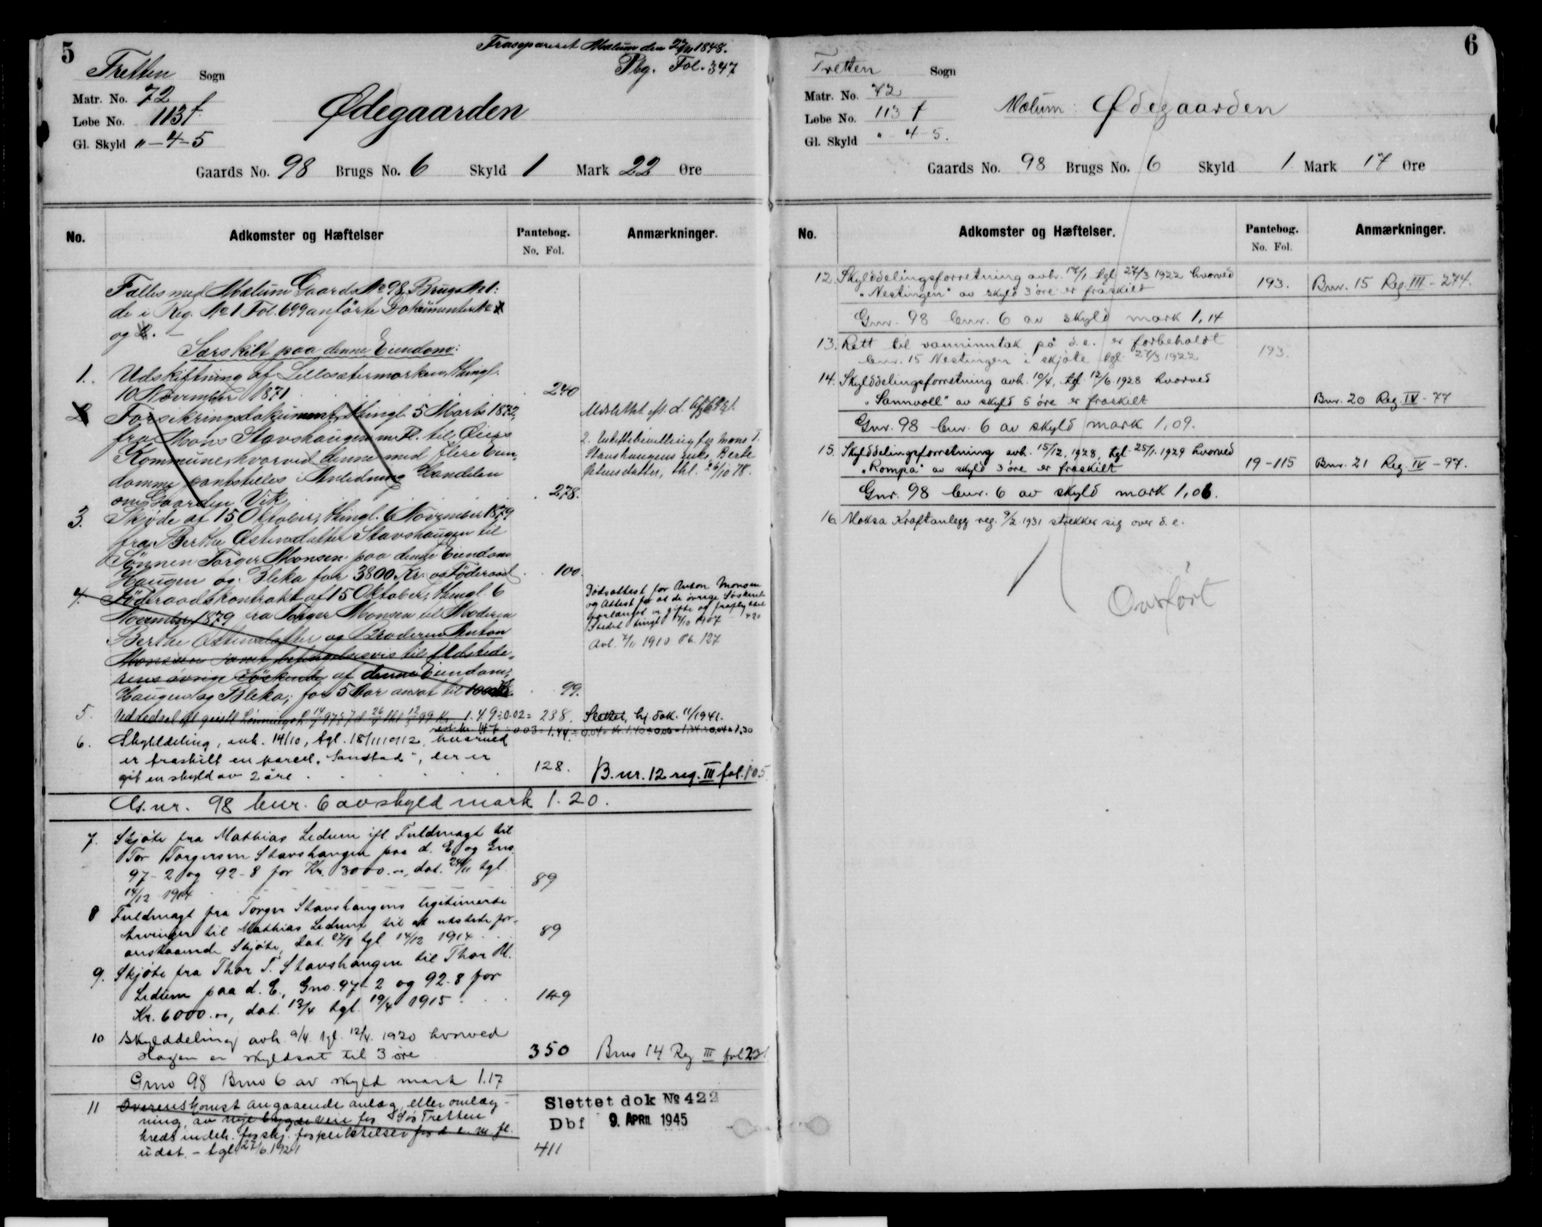 5
Fraseparert Mælum den 22/11 1848.
Pbg. Fol. 347
Tretten Sogn
Matr. No. 72
Løbe No. 113 f
Gl. Skyld " - 4 - 5
Ødegaarden
Gaards No. 98 Brugs No. 6 Skyld 1 Mark 22 Øre
No. Adkomster og Hæftelser Pantebog. No. Fol. Anmærkninger.
Fælles med Mælum Gaards No 98 Brugs No 1:
de i Reg. No 1 Fol. 699 anførte Dokumenter No 1
og 2. -
Særskilt paa denne Eiendom:
1. Udskiftning af Lillesætermarken thingl.
10 November 1871 240
2. Forsikringsdokument, thingl. 5 Marts 1872,
fra Mons Stavshaugen m. Fl. til Øiers
Kommune, hvorved denne med flere Eien-
domme pantstilles i Anledning Handelen
om Gaarden Vik. 278.
Udslettet eft. d.
2. Uskiftebevilling for Mons T.
Stavshaugens Enke, Berte
Østensdatter, thl. 26/10 78.
3. Skjøde af 15 Oktober, thingl. 6 November 1879
fra Berthe Østensdatter Stavshaugen til
Sønnen Torger Monsen paa denne Eiendom
Haugen og Bleka for 3800 Kr. og Føderaad 100.
4. Føderaadskontrakt af 15 Oktober, thingl. 6
November 1879 fra Torger Monsen til Moderen
Berthe Østensdatter og Broderen Anton
Monsen samt
af denne Eiendom,
Haugen og Bleka, for 5 Aar ansat til 1000 Kr. 99.
Dødsattest for Anton Monsen
og Attest for at de øvrige Søskende
Avl. 7/11 1910 Pb. 127
5. 1.49 ÷ 0.02 = 238. Slettet, lig dok. 11/1941.
6. Skylddeling, avh. 14/10, tgl. 18/11 1912, hvorved
er fraskilt en parcel, "Sandstad", der er
git en skyld av 2 øre 128. B. nr. 12 reg. III fol. 105
G. nr. 98 bnr. 6 av skyld mark 1.20.
7. Skjøte fra Mathias Ledum ifl. Fuldmagt til
Tor Torgersen Stavshaugen paa d. E. og Gno
97 - 2 og 92 - 8 for Kr. 3000.00, dat. 24/11 tgl.
14/12 1914 89
8 Fuldmagt fra Torger Stavshaugens legitimerte
Arvinger til Mathias Ledum til at utstede for-
anstaaende Skjøte, dat. 27/8 tgl 14/12 1914 89
9. Skjøte fra Thor T. Stavshaugen til Thor M.
Ledum paa d. E., Gno. 97 - 2 og 92 - 8 for
Kr. 6000.00, dat. 13/4 tgl. 19/4 1915 149
10 Skylddeling avh. 9/4 tgl. 12/4. 1920 hvorved
Hagen er skyldsat til 3 øre 350 Bno 14 Reg III fol 231
Gno 98 Bno 6 av skyld mark 1.17
11 Overenskomst angaaende anlæg eller omlæg-
ning av nye bygdeveie for Søs Tretten
kreds indeh. forskj. forpliktelser for d. e. m. fl.
udat. - tgl. 24/6 1921 411
Slettet dok No 422
Dbf 9. APRIL 1945
6
Tretten Sogn
Matr. No. 72
Løbe No. 113 f
Gl. Skyld " 4 - 5.
Mælum: Ødegaarden
Gaards No. 98 Brugs No. 6 Skyld 1 Mark 17 Øre
No. Adkomster og Hæftelser. Pantebog. No. Fol. Anmærkninger.
12. Skylddelingsforretning avh. 14/1 tgl. 27/3 1922 hvorved
"Nestingen" av skyld 3 øre er fraskilt 193. Bnr. 15 Reg. III - 274.
Gnr. 98 bnr. 6 av skyld mark 1,14
13. Rett til vanninntak på d. e. er forbeholdt
bnr. 15 Nestingen i skjøte tgl. 27/3 1922 193.
14. Skylddelingsforretning avh. 10/4, tgl. 12/6 1928 hvorved
"Sannvoll" av skyld 5 øre er fraskilt Bnr. 20 Reg IV - 77
Gnr. 98 bnr. 6 av skyld mark 1,09.
15. Skylddelingsforretning avh. 15/12. 1928, tgl. 25/1. 1929 hvorved
"Rompa" av skyld 3 øre er fraskilt 19 - 115 Bnr. 21 Reg IV - 97.
Gnr. 98 bnr. 6 av skyld mark 1,06.
16. Moksa Kraftanlegg reg. 9/2 1931 strekker sig over d. e.
Overført